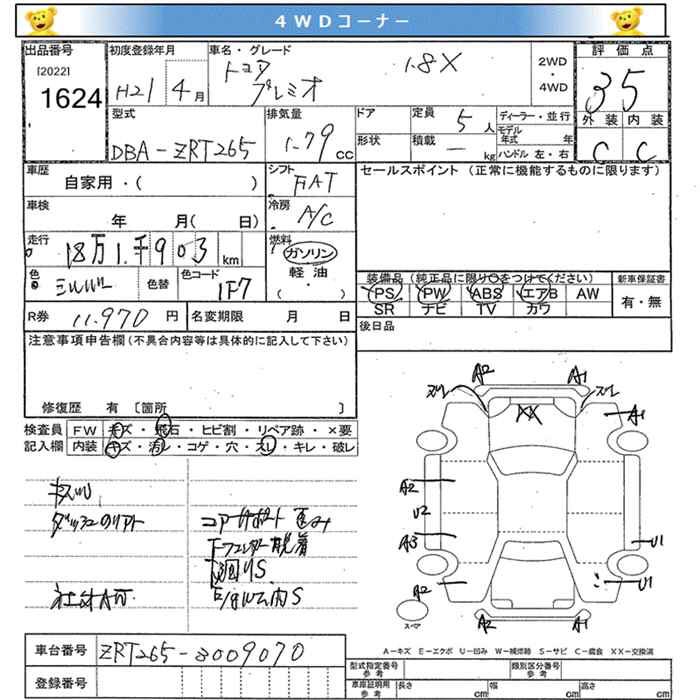 4WDコーナー
出品番号
[2022]
1624
初度登録年月
H21 4月
車名・グレード
トヨタ
プレミオ
1.8X
2WD
・
4WD
評価点
3.5
外装 内装
C C
型式
DBA-ZRT265
排気量
1.79 cc
ドア
形状
定員 5人
積載 — kg
ディーラー・並行
モデル年式 年
ハンドル 左・右
車歴
自家用・( )
シフト
FAT
セールスポイント (正常に機能するものに限ります)
車検
年 月( 日)
冷房
A/C
走行
18万1千903 km
燃料
ガソリン
軽・油
・( )
色
シルバー
色替
色コード
1F7
装備品 (純正品に限り○をつけてください)
PS PW ABS エアB AW
SR ナビ TV カワ
新車保証書
有・無
R券 11.970 円
名変期限 月 日
後日品
注意事項申告欄(不具合内容等は具体的に記入して下さい)
修復歴 有 [箇所 ]
検査員
記入欄
FW キズ・飛石・ヒビ割・リペア跡・×要
内装 キズ・汚レ・コゲ・穴・スレ・キレ・破レ
コアサポート 歪み
Fフェンダー脱着
下廻りS
A2 A1
XX
A1
A2
U2
A3
A2
U1
U1
A2 A1
スペア
A-キズ E-エクボ U-凹み W-補修跡 S-サビ C-腐食 XX-交換済
車台番号 ZRT265-3009070
登録番号
型式指定番号
参考
類別区分番号
参考
車庫証明用
参考
長さ cm 幅 cm 高さ cm